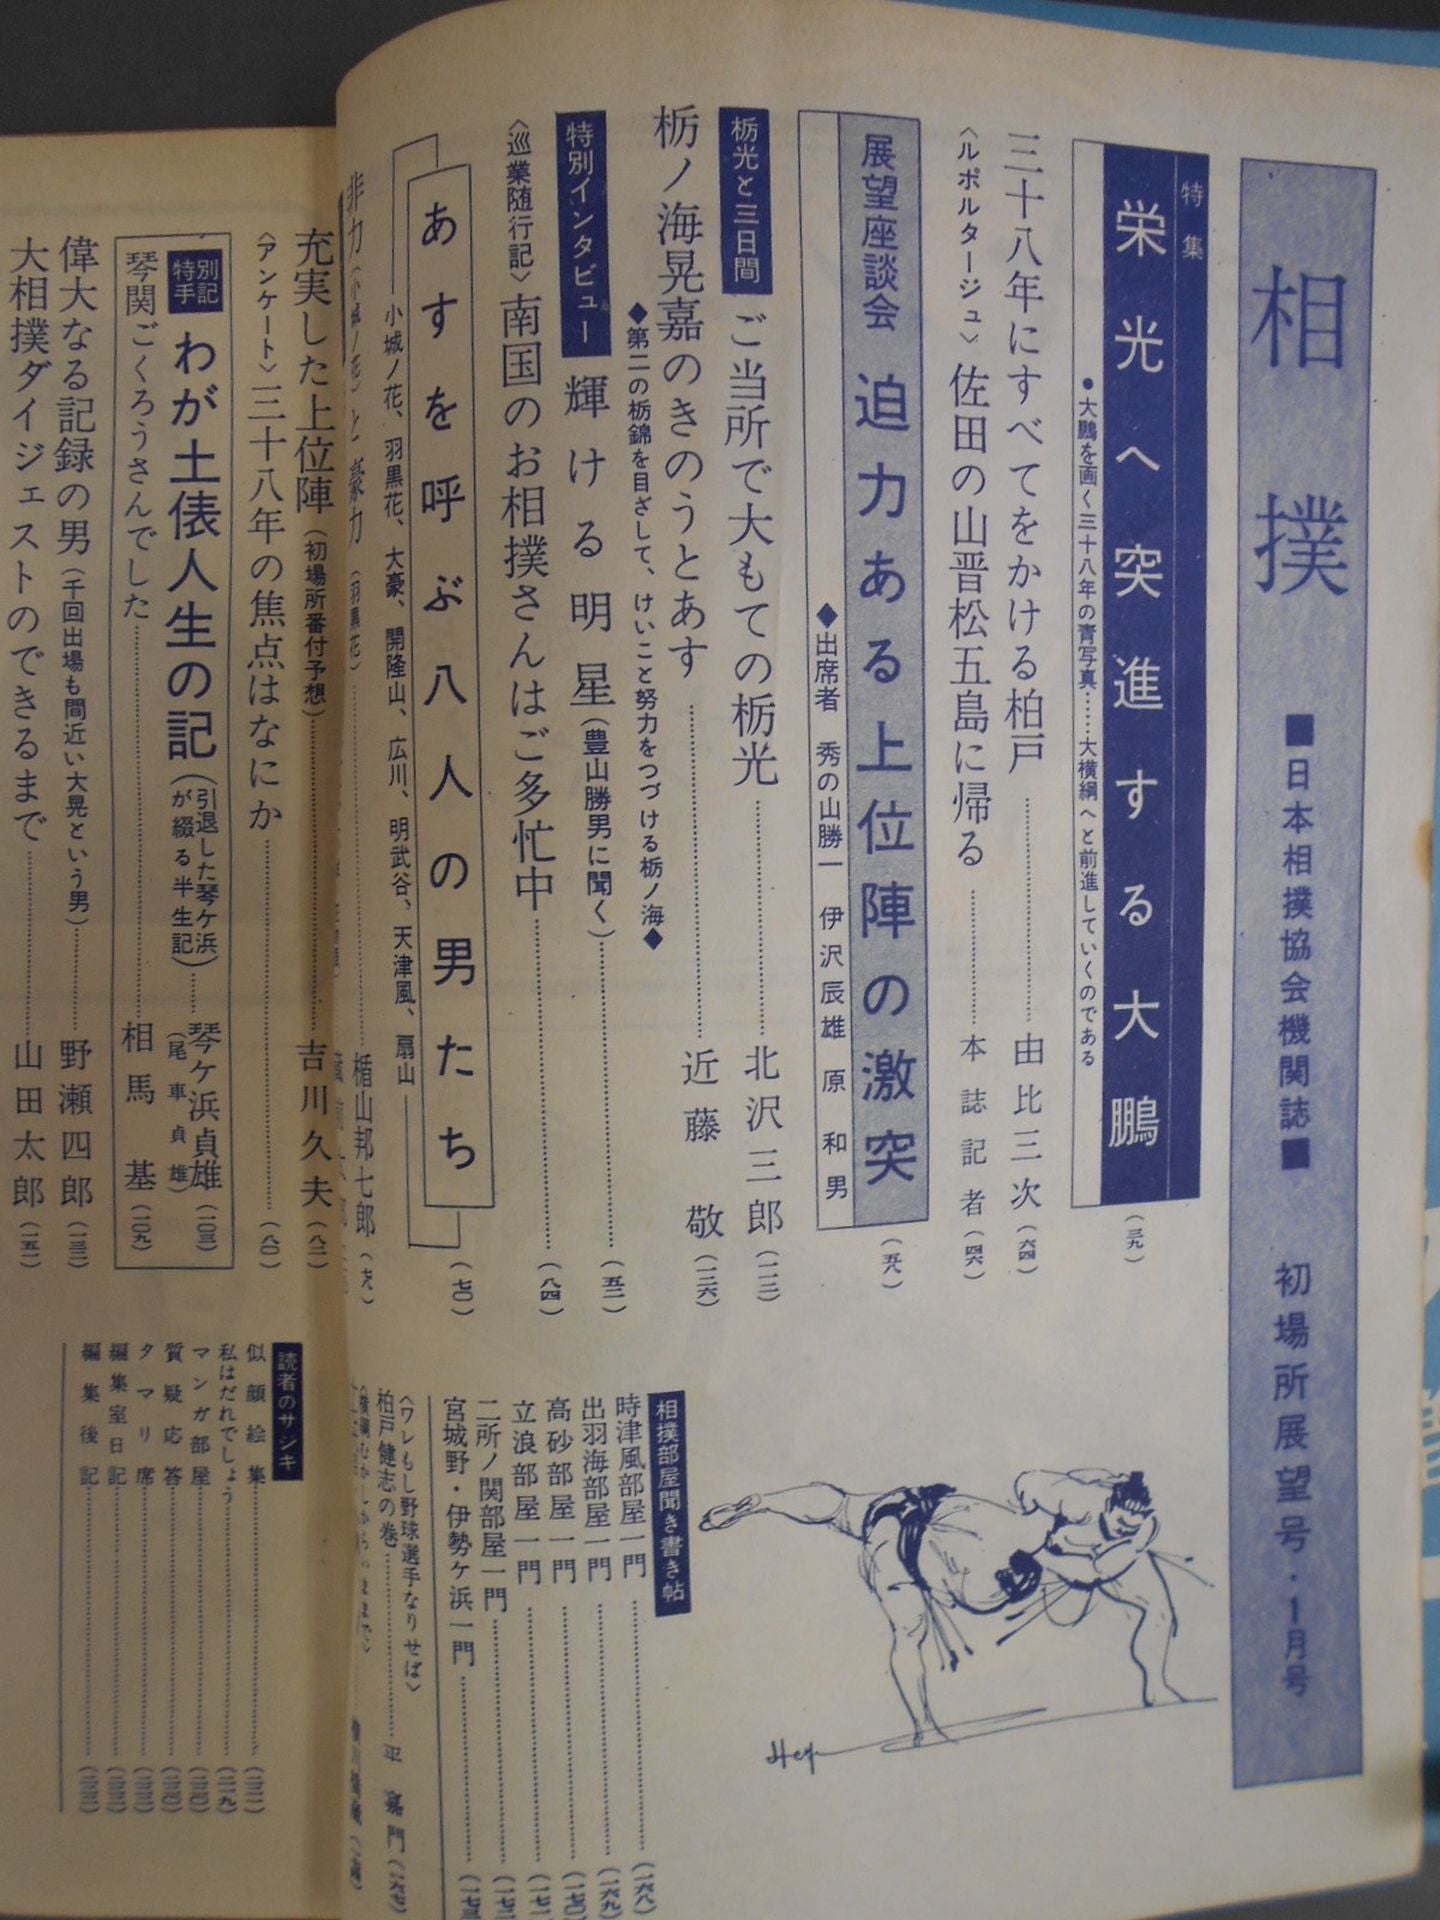 相撲
■日本相撲協会機関誌■
初場所展望号・1月号
特集
栄光へ突進する大鵬
(三九)
●大鵬を画く三十八年の青写真……大横綱へと前進していくのである
三十八年にすべてをかける柏戸
由比三次
(六四)
〈ルポルタージュ〉佐田の山晋松五島に帰る
本誌記者
(四六)
展望座談会 迫力ある上位陣の激突
(五八)
◆出席者 秀の山勝一 伊沢辰雄 原和男
栃光と三日間
ご当所で大もての栃光
北沢三郎
栃ノ海晃嘉のきのうとあす
近藤敬
(一二六)
◆第二の栃錦を目ざして、けいこと努力をつづける栃ノ海◆
特別インタビュー
輝ける明星(豊山勝男に聞く)
(五二)
〈巡業随行記〉南国のお相撲さんはご多忙中
(八四)
あすを呼ぶ八人の男たち
(七〇)
小城ノ花、羽黒花、大豪、開隆山、広川、明武谷、天津風、扇山
非力(小城ノ花)と豪力(羽黒花)
楯山邦七郎
充実した上位陣(初場所番付予想)
吉川久夫
(八二)
〈アンケート〉三十八年の焦点はなにか
(八〇)
特別手記
わが土俵人生の記(引退した琴ケ浜が綴る半生記)
琴ケ浜貞雄
(尾車貞雄)
(一〇三)
琴関ごくろうさんでした
相馬基
(一〇九)
偉大なる記録の男(千回出場も間近い大晃という男)
野瀬四郎
(一三二)
大相撲ダイジェストのできるまで
山田太郎
(一五一)
相撲部屋聞き書き帖
時津風部屋一門
(一六八)
出羽海部屋一門
(一六九)
高砂部屋一門
(一七〇)
立浪部屋一門
二所ノ関部屋一門
宮城野・伊勢ケ浜一門
〈ワレもし野球選手なりせば〉
柏戸健志の巻
平 門
読者のサジキ
似顔絵集
私はだれでしょう
マンガ部屋
質疑応答
タマリ席
編集室日記
編集後記